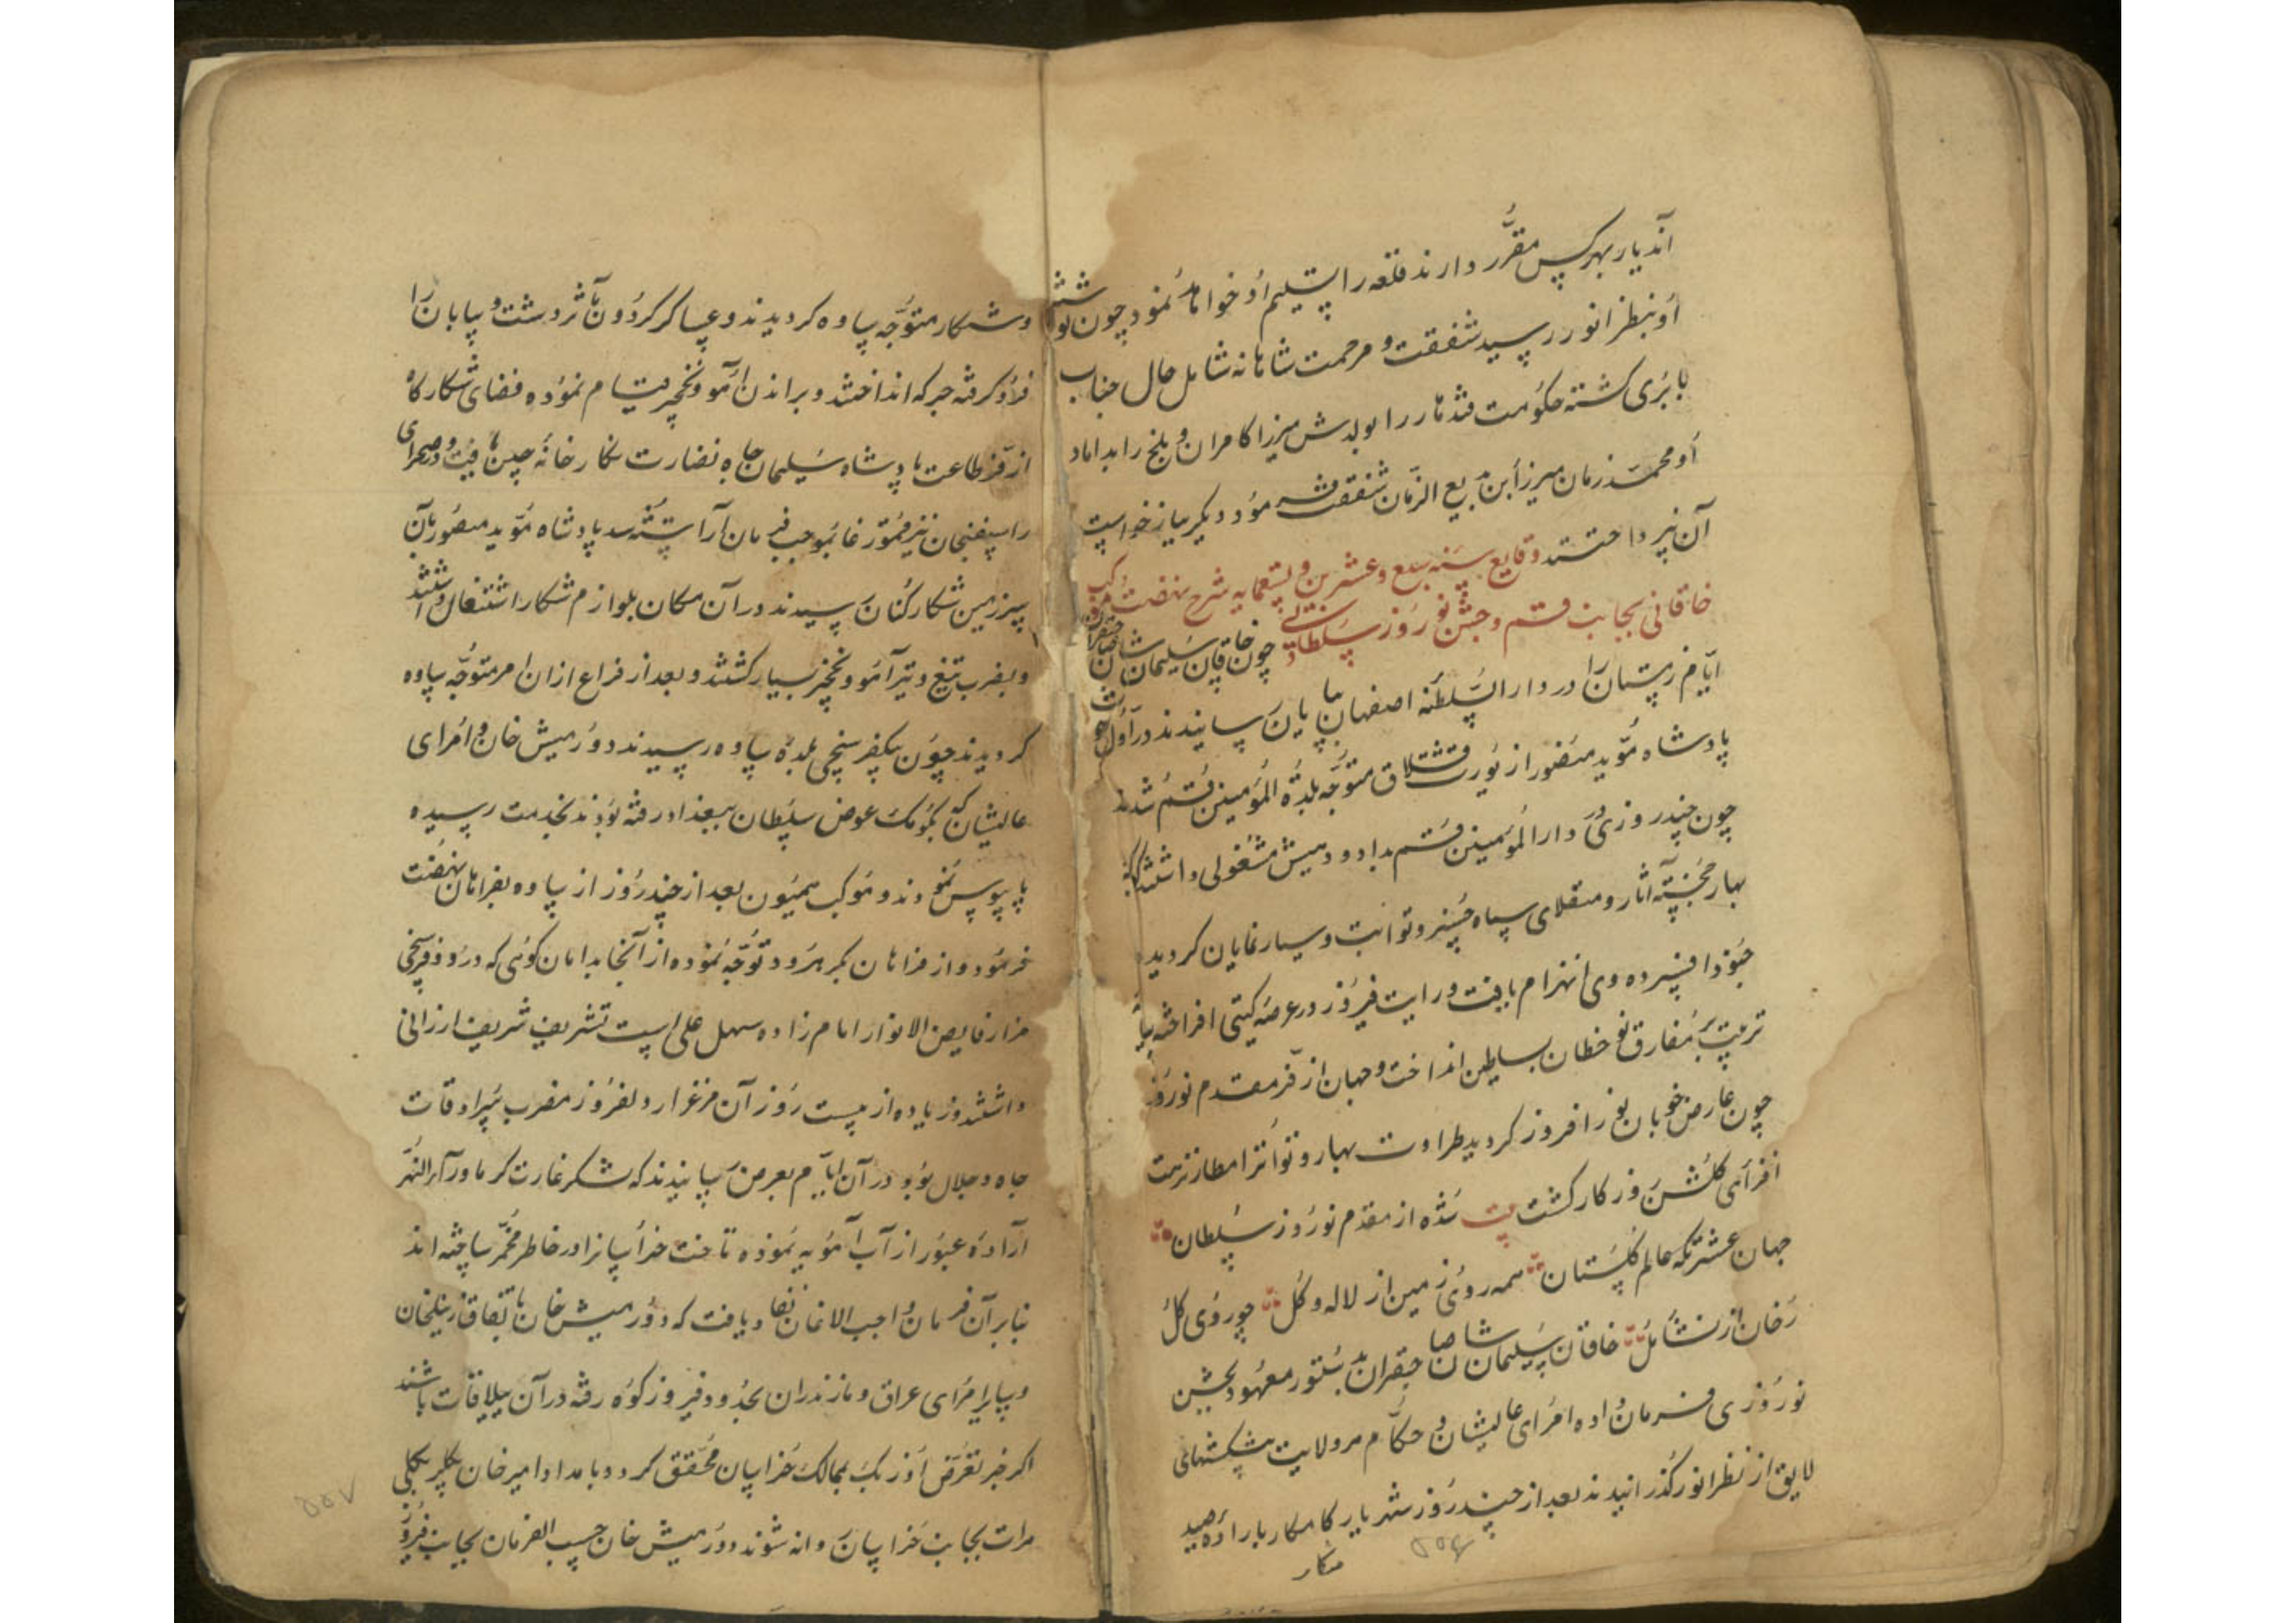 آندیار بهر کس مقرر دارند قلعه را تسلیم او خواهد نمود چون نوشته
او بنظر انور رسید شفقت و مرحمت شاهانه شامل حال جناب
بابری کشته حکومت قندهار را بولدش میرزا کامران و بلخ را بداماد
او محمد زمان میرزا ابن بدیع الزمان شفقت فرموده دیکر بباز خواست
آن نپرداختند وقایع سنه سبع و عشرین و تسعمایه شرح نهضت موکب
خاقانی بجانب قم و جشن نوروز سلطانی چون خاقان سلیمان شان صاحبقران
ایام زمستان را در دار السلطنه اصفهان بپایان رسانیدند در اول حوت
پادشاه مؤید منصور از یورت قشلاق متوجه بلدة المؤمنین قم شدند
چون چند روزی در دار المؤمنین قم بداد و دهش مشغولی داشتند کوکبه
بهار خجسته آثار و منقلای سپاه خسرو ثوابت و سیار نمایان کردید
جنود افسرده دی انهزام یافت و رایت فیروز در عرصه کیتی افراخته سایه
تربیت بر مفارق نو خطان بساطین انداخت و جهان از فر مقدم نوروز
چون عارض خوبان نور افروز کردید طراوت بهار و تواتر امطار نزهت
افزای کلشن روزکار کشت بیت شده از مقدم نوروز سلطان
جهان عشرتکه عالم کلستان همه روی زمین از لاله و کل چو روی کل
رخان از نشأ مل خاقان سلیمان شان صاحبقران بدستور معهود بجشن
نوروزی فرمان داده امرای عالیشان و حکام هر ولایت پیشکشهای
لایق از نظر انور کذرانیدند بعد از چند روز شهریار کامکار باراده صید
۵۵۶
شکار
و شکار متوجه ساوه کردیدند و عساکر کردون مآثر دشت و بیابان را
فرو کرفته جرکه انداختند و براندن آهو و نخجیر قیام نموده فضای شکارکاه
از فر طاعت پادشاه سلیمان جاه نضارت نکارخانه چین یافت و صحرای
را سپفنجان نیز قمورغا بموجب فرمان آراسته شد پادشاه مؤید منصور بآن
سرزمین شکارکنان رسیدند در آن مکان بلوازم شکار اشتغال داشتند
و بضرب تیغ و تیر آهو و نخجیر بسیار کشتند و بعد از فراغ از ان امر متوجه ساوه
کردیدند چون بیکفرسنجی بلده ساوه رسیدند دورمیش خان و امرای
عالیشان که بکومک عوض سلطان ببغداد رفته بودند بخدمت رسیده
پایبوس نمودند و موکب همیون بعد از چند روز از ساوه بفراهان نهضت
فرمود و از فراهان بکمرهرود توجه نموده از آنجا بدامان کوهی که در دو فرسخی
مزار فایض الانوار امام زاده سهل علی است تشریف شریف ارزانی
داشتند و زیاده از بیست روز آن مرغزار دلفروز مضرب سرادقات
جاه و جلال بود و در آن ایام بعرض رسانیدند که لشکر غارت کر ماوراء النهر
اراده عبور از آب آمویه نموده تاخت خراسانرا در خاطر مخمر ساخته اند
بنابر آن فرمان واجب الاذعان نفاذ یافت که دورمیش خان باتفاق زینلخان
و سایر امرای عراق و مازندران بحدود فیروزکوه رفته در آن ییلاقات باشند
اکر خبر تعرض اوزبک بممالک خراسان محقق کردد بامداد امیر خان بیکلربیکی
هرات بجانب خراسان روانه شوند دورمیش خان حسب الفرمان بجانب فیروز
۵۵۷